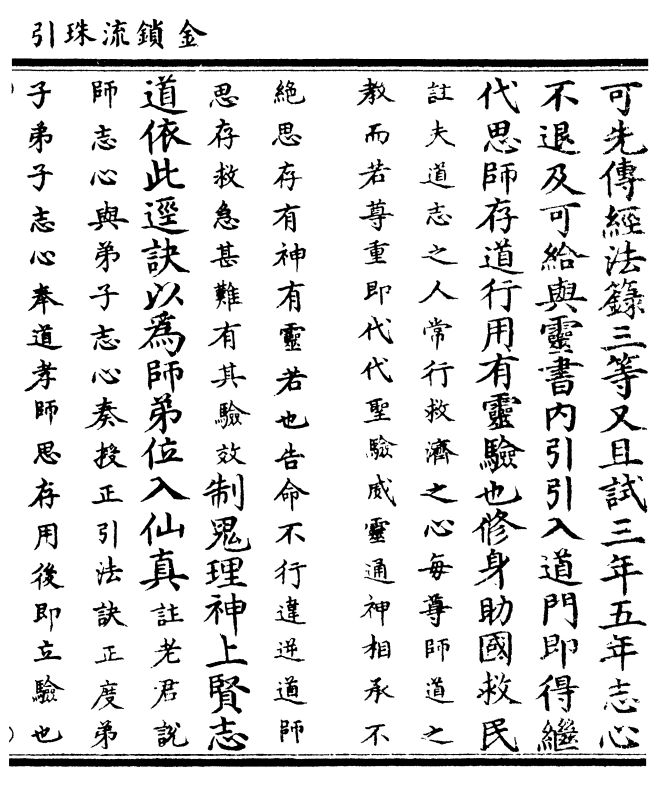 金鎖流珠引
可先傳經法籙三等又且試三年五年志心
不退及可給與靈書內引引入道門即得繼
代思師存道行用有靈驗也修身助國救民
註夫道志之人常行救濟之心每尊師道之
教而若尊重即代代聖驗威靈通神相承不
絕思存有神有靈若也告命不行違逆道師
思存救急甚難有其驗效制鬼理神上賢志
道依此逕訣以爲師弟位入仙真註老君說
師志心與弟子志心奏授正引法訣正度弟
子弟子志心奉道孝師思存用後即立驗也